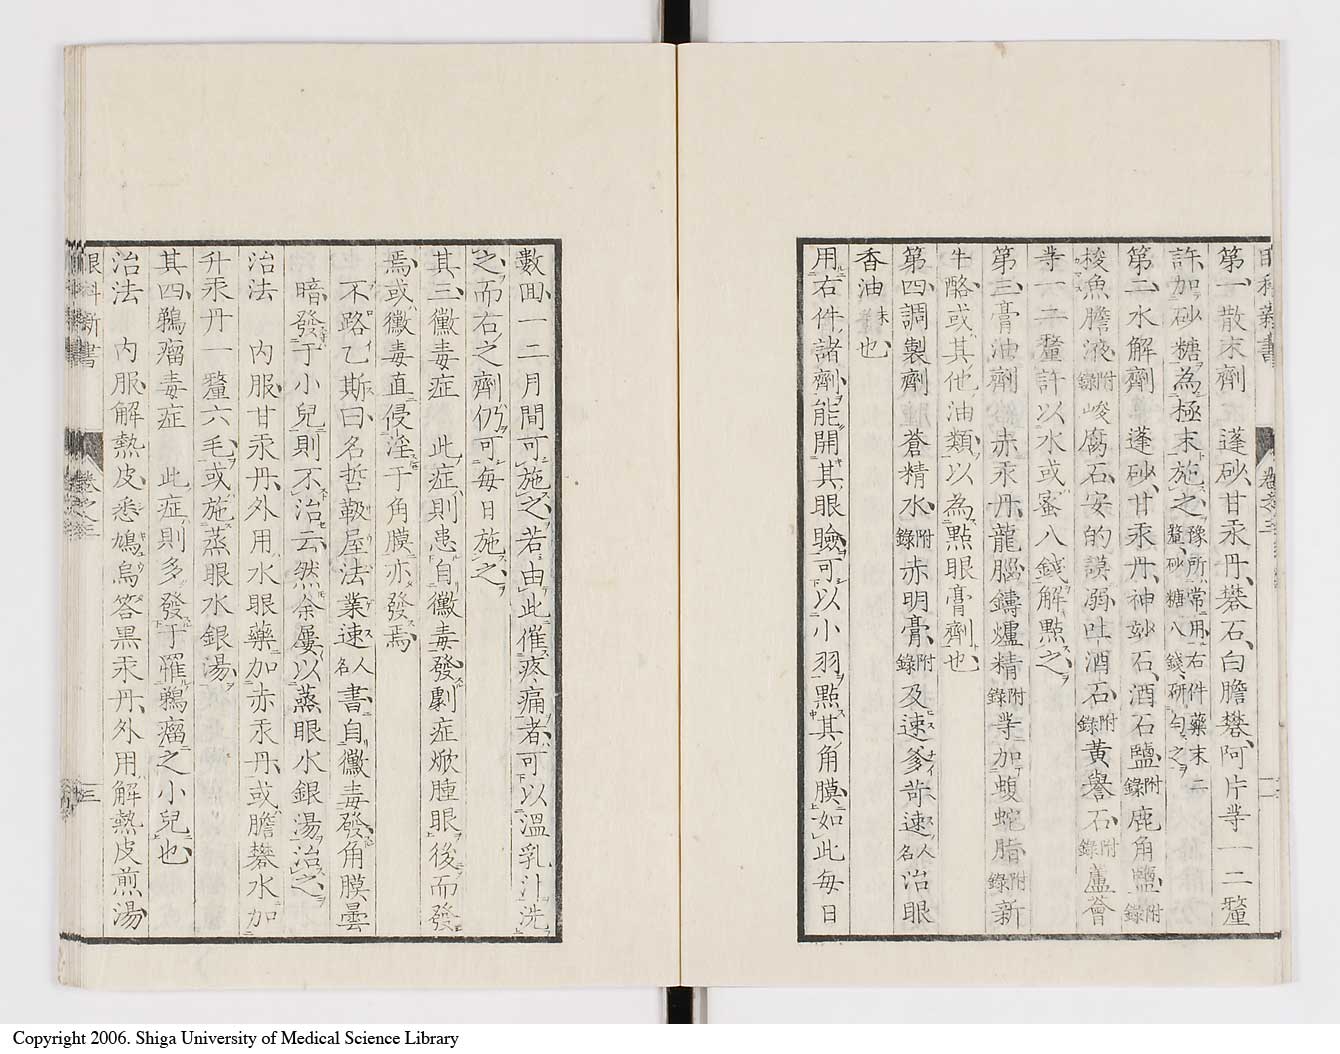 眼科新書
卷之三
第一散末劑 蓬砂、甘汞丹、礬石、白膽礬、阿片等一二釐
許、加砂糖為極末施之、豫所常用右件藥末二釐、砂糖八錢、研勻之
第二水解劑 蓬砂、甘汞丹、神妙石、酒石鹽附錄鹿角鹽附錄
梭魚膽液附錄峻腐石、安的謨弱吐酒石附錄黃譽石附錄蘆薈
等一二釐許以水或蜜八錢解點之、
第三膏油劑 赤汞丹、龍腦、鑄爐精附錄等加蝮蛇脂附錄新
牛酪或其他油類以為點眼膏劑也
第四調製劑 蒼精水、附錄赤明膏、附錄及速爹苛速人名治眼
香油未也
用右件諸劑能開其眼瞼可以小羽點其角膜如此每日
數回一二月間可施之若由此催疼痛者可以溫乳汁洗
之而右之劑仍可每日施之
其三黴毒症 此症則患自黴毒發劇症焮腫眼後而發
焉或黴毒直侵淫于角膜亦發焉
不路乙斯曰名哲毅屋法業速人名書自黴毒發角膜曇
暗發于小兒則不治云然余屢以蒸眼水銀湯治之
治法 內服甘汞丹、外用水眼藥加赤汞丹、或膽礬水加
升汞丹一釐六毛、或施蒸眼水銀湯、
其四鵝瘤毒症 此症則多發于罹鵝瘤之小兒也
治法 內服解熱皮、悉鳩烏答黑汞丹、外用解熱皮煎湯
眼科新書
卷之三
三
Copyright 2006. Shiga University of Medical Science Library